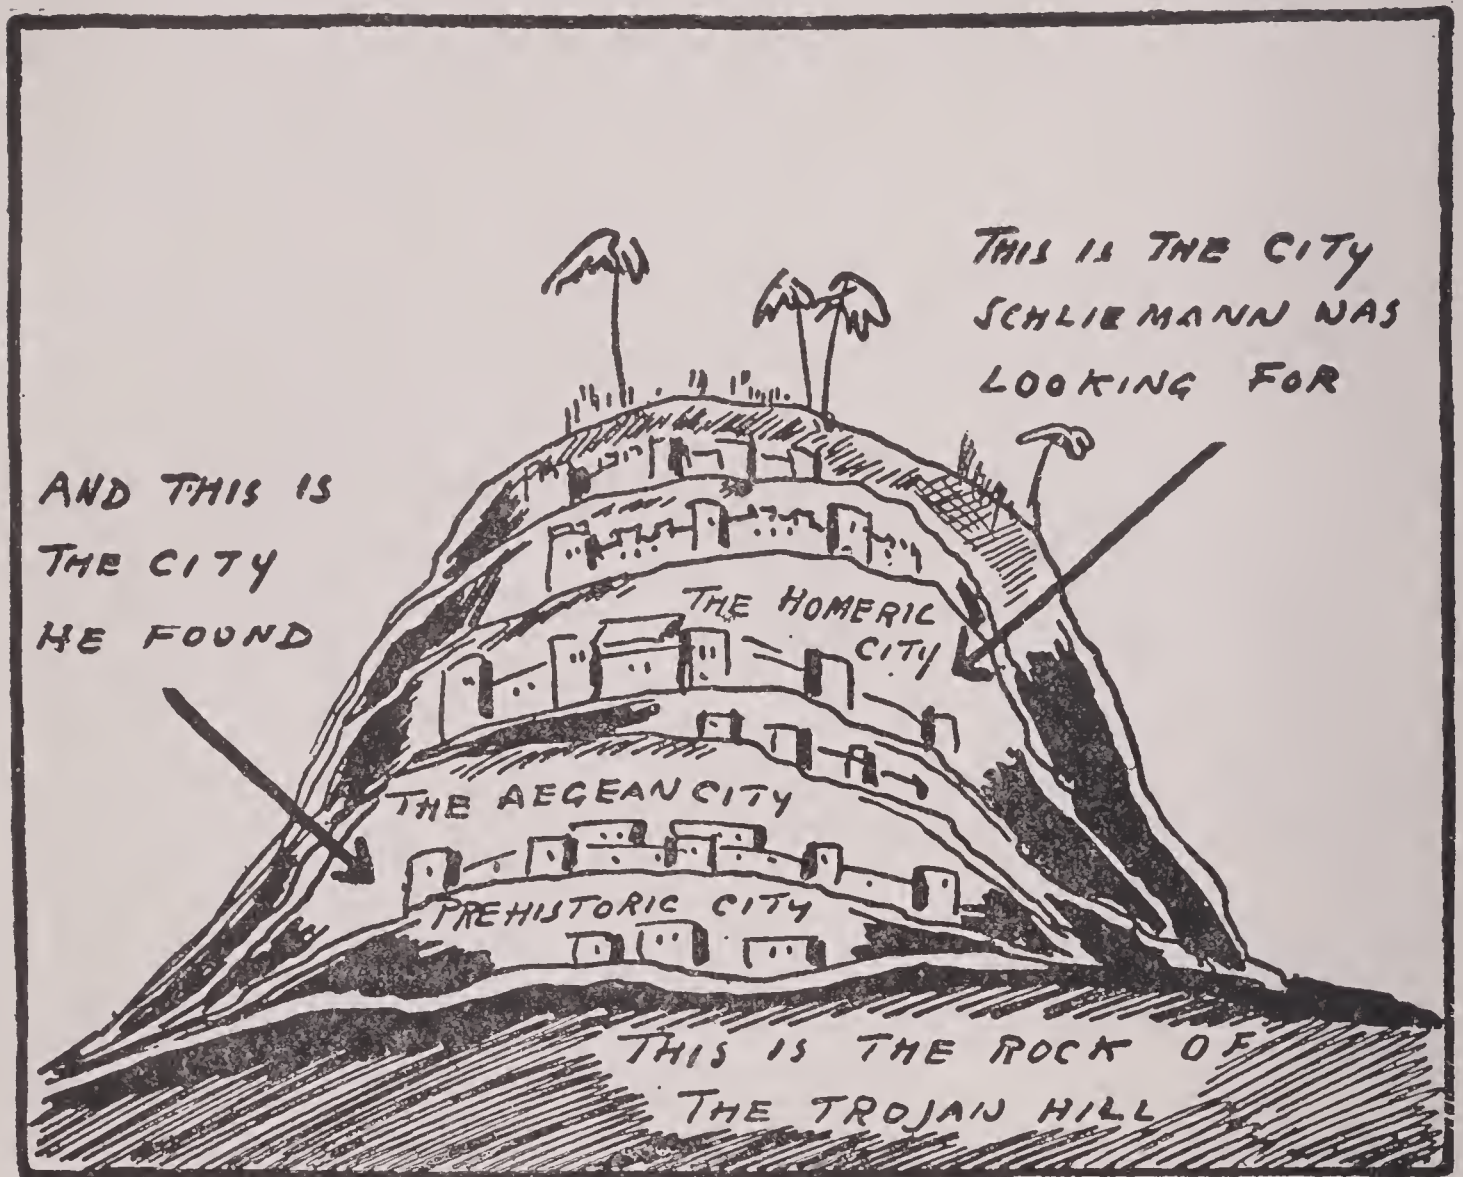 THIS IS THE CITY
SCHLIEMANN WAS
LOOKING FOR
AND THIS IS
THE CITY
HE FOUND
THE HOMERIC
CITY
THE AEGEAN CITY
PREHISTORIC CITY
THIS IS THE ROCK OF
THE TROJAN HILL